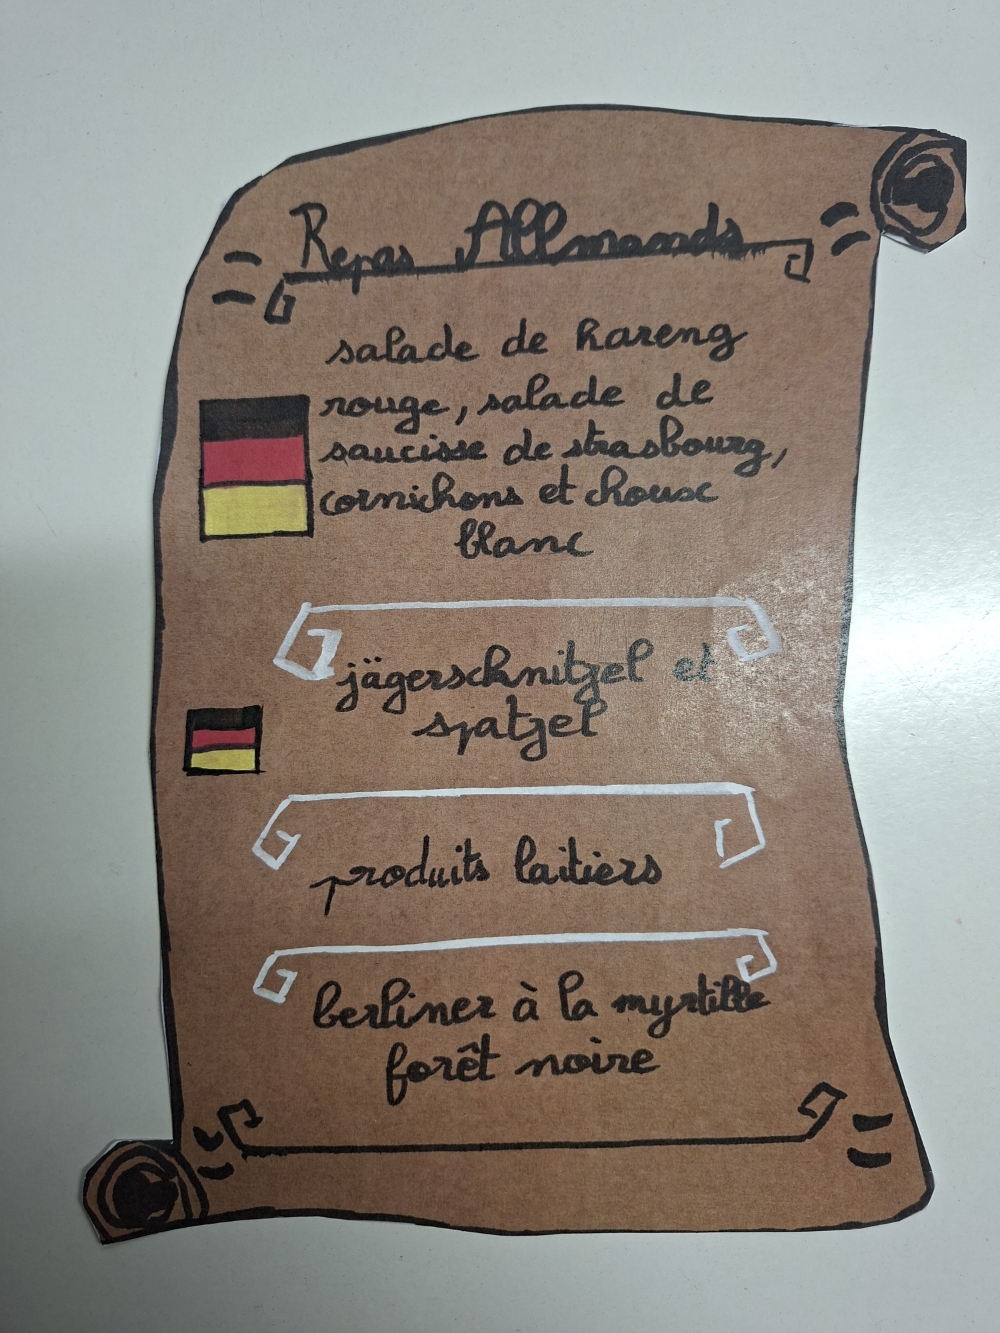 Repas Allmands
salade de hareng
rouge, salade de
saucisse de strasbourg,
cornichons et choux
blanc
jägerschnitzel et
spatzel
produits laitiers
berliner à la myrtille
forêt noire